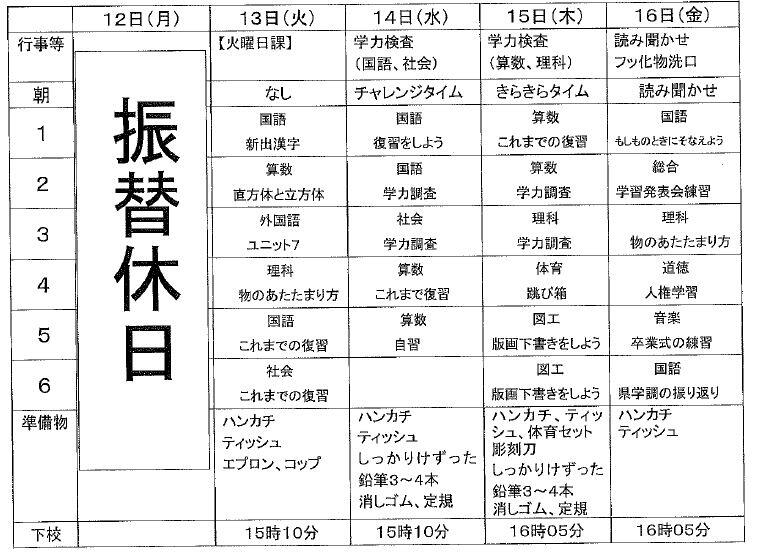 12日(月) 13日(火) 14日(水) 15日(木) 16日(金)
行事等 【火曜日課】 学力検査 学力検査 読み聞かせ
(国語、社会) (算数、理科) フッ化物洗口
振替休日
朝 なし チャレンジタイム きらきらタイム 読み聞かせ
1 国語 国語 算数 国語
新出漢字 復習をしよう これまでの復習 もしものときにそなえよう
2 算数 国語 算数 総合
直方体と立方体 学力調査 学力調査 学習発表会練習
3 外国語 社会 理科 理科
ユニット7 学力調査 学力調査 物のあたたまり方
4 理科 算数 体育 道徳
物のあたたまり方 これまで復習 跳び箱 人権学習
5 国語 算数 図工 音楽
これまでの復習 自習 版画下書きをしよう 卒業式の練習
6 社会 図工 国語
これまでの復習 版画下書きをしよう 県学調の振り返り
準備物 ハンカチ ハンカチ ハンカチ、ティッ ハンカチ
ティッシュ ティッシュ シュ、体育セット ティッシュ
エプロン、コップ しっかりけずった 彫刻刀
鉛筆3〜4本 しっかりけずった
消しゴム、定規 鉛筆3〜4本
消しゴム、定規
下校 15時10分 15時10分 16時05分 16時05分